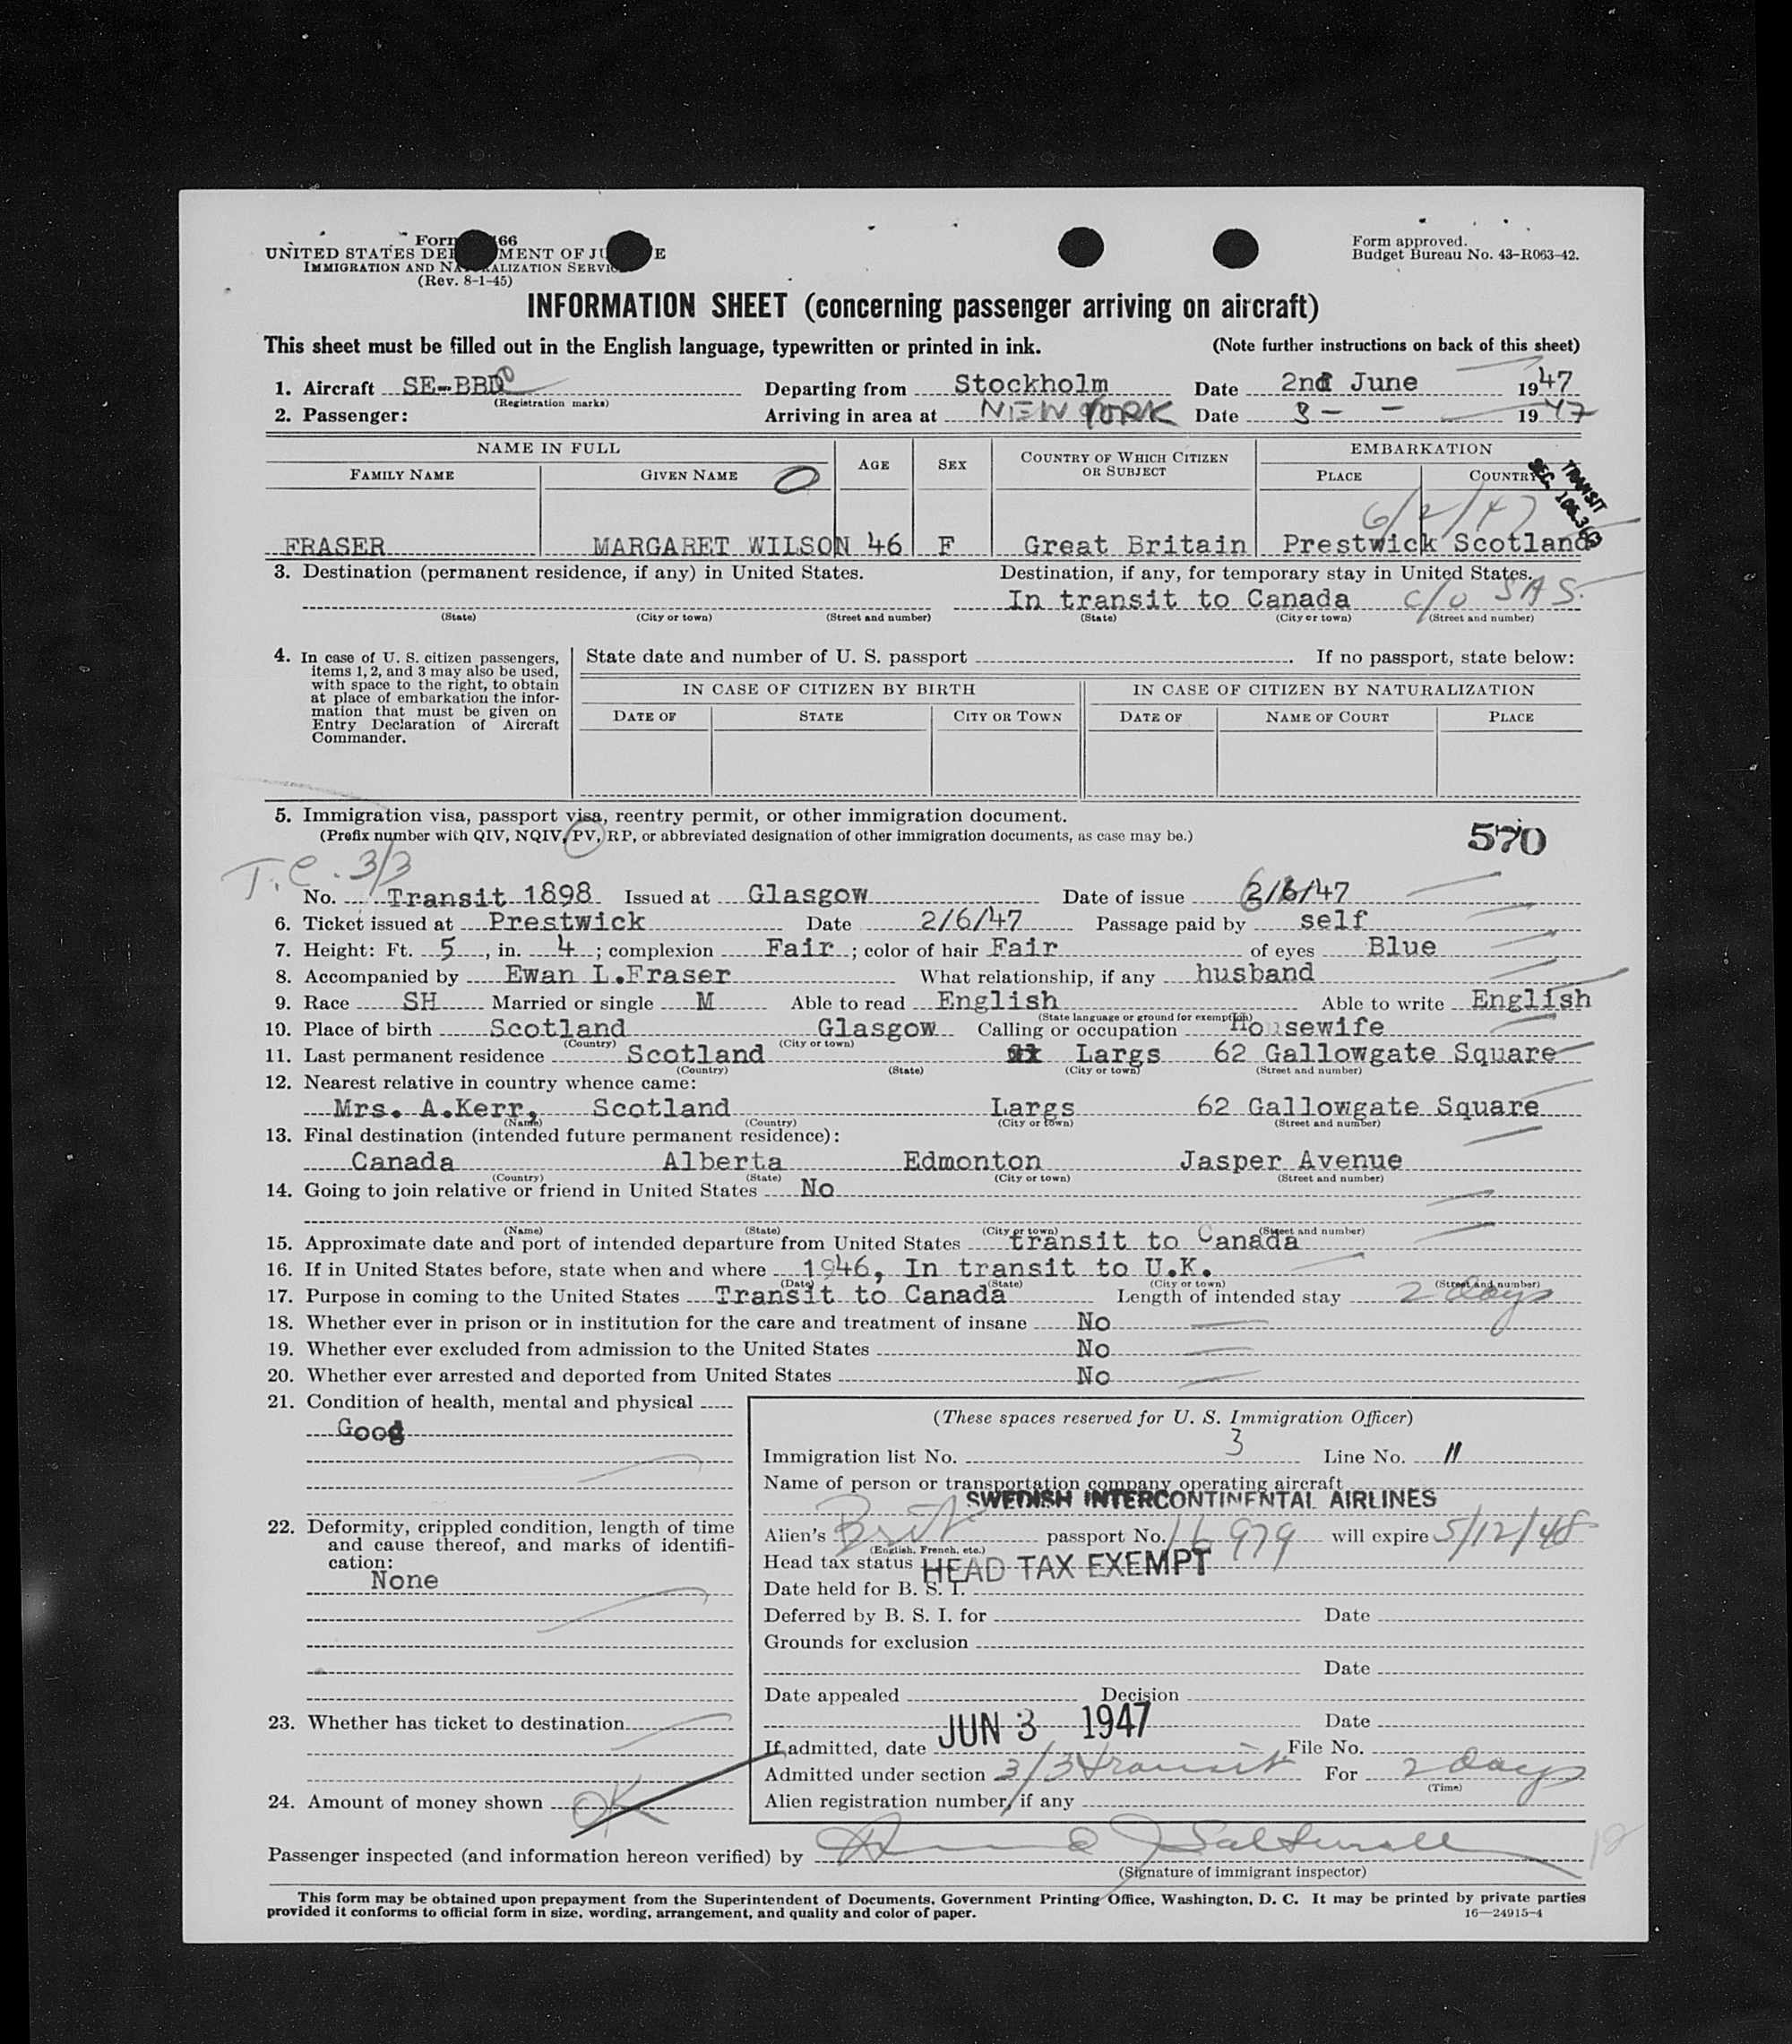 Form 66
UNITED STATES DEPARTMENT OF JUSTICE
IMMIGRATION AND NATURALIZATION SERVICE
(Rev. 8-1-45)
Form approved.
Budget Bureau No. 43-R063-42.
INFORMATION SHEET (concerning passenger arriving on aircraft)
This sheet must be filled out in the English language, typewritten or printed in ink. (Note further instructions on back of this sheet)
1. Aircraft SE-BBD Departing from Stockholm Date 2nd June 1947
(Registration marks)
2. Passenger: Arriving in area at NEW YORK Date 3 - - 1947
NAME IN FULL AGE SEX COUNTRY OF WHICH CITIZEN OR SUBJECT EMBARKATION
FAMILY NAME GIVEN NAME PLACE COUNTRY
TRANSIT
6/2/47
FRASER MARGARET WILSON 46 F Great Britain Prestwick Scotland
3. Destination (permanent residence, if any) in United States. Destination, if any, for temporary stay in United States.
In transit to Canada c/o SAS.
(State) (City or town) (Street and number) (State) (City or town) (Street and number)
4. In case of U. S. citizen passengers, items 1, 2, and 3 may also be used, with space to the right, to obtain at place of embarkation the information that must be given on Entry Declaration of Aircraft Commander.
State date and number of U. S. passport . If no passport, state below:
IN CASE OF CITIZEN BY BIRTH IN CASE OF CITIZEN BY NATURALIZATION
DATE OF STATE CITY OR TOWN DATE OF NAME OF COURT PLACE
5. Immigration visa, passport visa, reentry permit, or other immigration document.
(Prefix number with QIV, NQIV, PV, RP, or abbreviated designation of other immigration documents, as case may be.)
570
T.C. 3/3
No. Transit 1898 Issued at Glasgow Date of issue 2/6/47
6. Ticket issued at Prestwick Date 2/6/47 Passage paid by self
7. Height: Ft. 5, in. 4; complexion Fair; color of hair Fair of eyes Blue
8. Accompanied by Ewan L.Fraser What relationship, if any husband
9. Race SH Married or single M Able to read English Able to write English
(State language or ground for exemption)
10. Place of birth Scotland Glasgow Calling or occupation Housewife
(Country) (City or town)
11. Last permanent residence Scotland Largs 62 Gallowgate Square
(Country) (State) (City or town) (Street and number)
12. Nearest relative in country whence came:
Mrs. A.Kerr, Scotland Largs 62 Gallowgate Square
(Name) (Country) (City or town) (Street and number)
13. Final destination (intended future permanent residence):
Canada Alberta Edmonton Jasper Avenue
(Country) (State) (City or town) (Street and number)
14. Going to join relative or friend in United States No
(Name) (State) (City or town) (Street and number)
15. Approximate date and port of intended departure from United States transit to Canada
16. If in United States before, state when and where 1946, In transit to U.K.
(Date) (State) (City or town) (Street and number)
17. Purpose in coming to the United States Transit to Canada Length of intended stay 2 days
18. Whether ever in prison or in institution for the care and treatment of insane No
19. Whether ever excluded from admission to the United States No
20. Whether ever arrested and deported from United States No
21. Condition of health, mental and physical
Good
22. Deformity, crippled condition, length of time and cause thereof, and marks of identification:
None
23. Whether has ticket to destination
24. Amount of money shown OK
(These spaces reserved for U. S. Immigration Officer)
Immigration list No. 3 Line No. 11
Name of person or transportation company operating aircraft
SWEDISH INTERCONTINENTAL AIRLINES
Alien's Brit passport No. 16979 will expire 5/12/48
(English, French, etc.)
Head tax status HEAD TAX EXEMPT
Date held for B. S. I.
Deferred by B. S. I. for Date
Grounds for exclusion
Date
Date appealed Decision
Date
If admitted, date JUN 3 1947 File No.
Admitted under section 3/3 transit For 2 days
(Time)
Alien registration number, if any
Passenger inspected (and information hereon verified) by
(Signature of immigrant inspector)
This form may be obtained upon prepayment from the Superintendent of Documents, Government Printing Office, Washington, D. C. It may be printed by private parties
provided it conforms to official form in size, wording, arrangement, and quality and color of paper. 16—24915-4